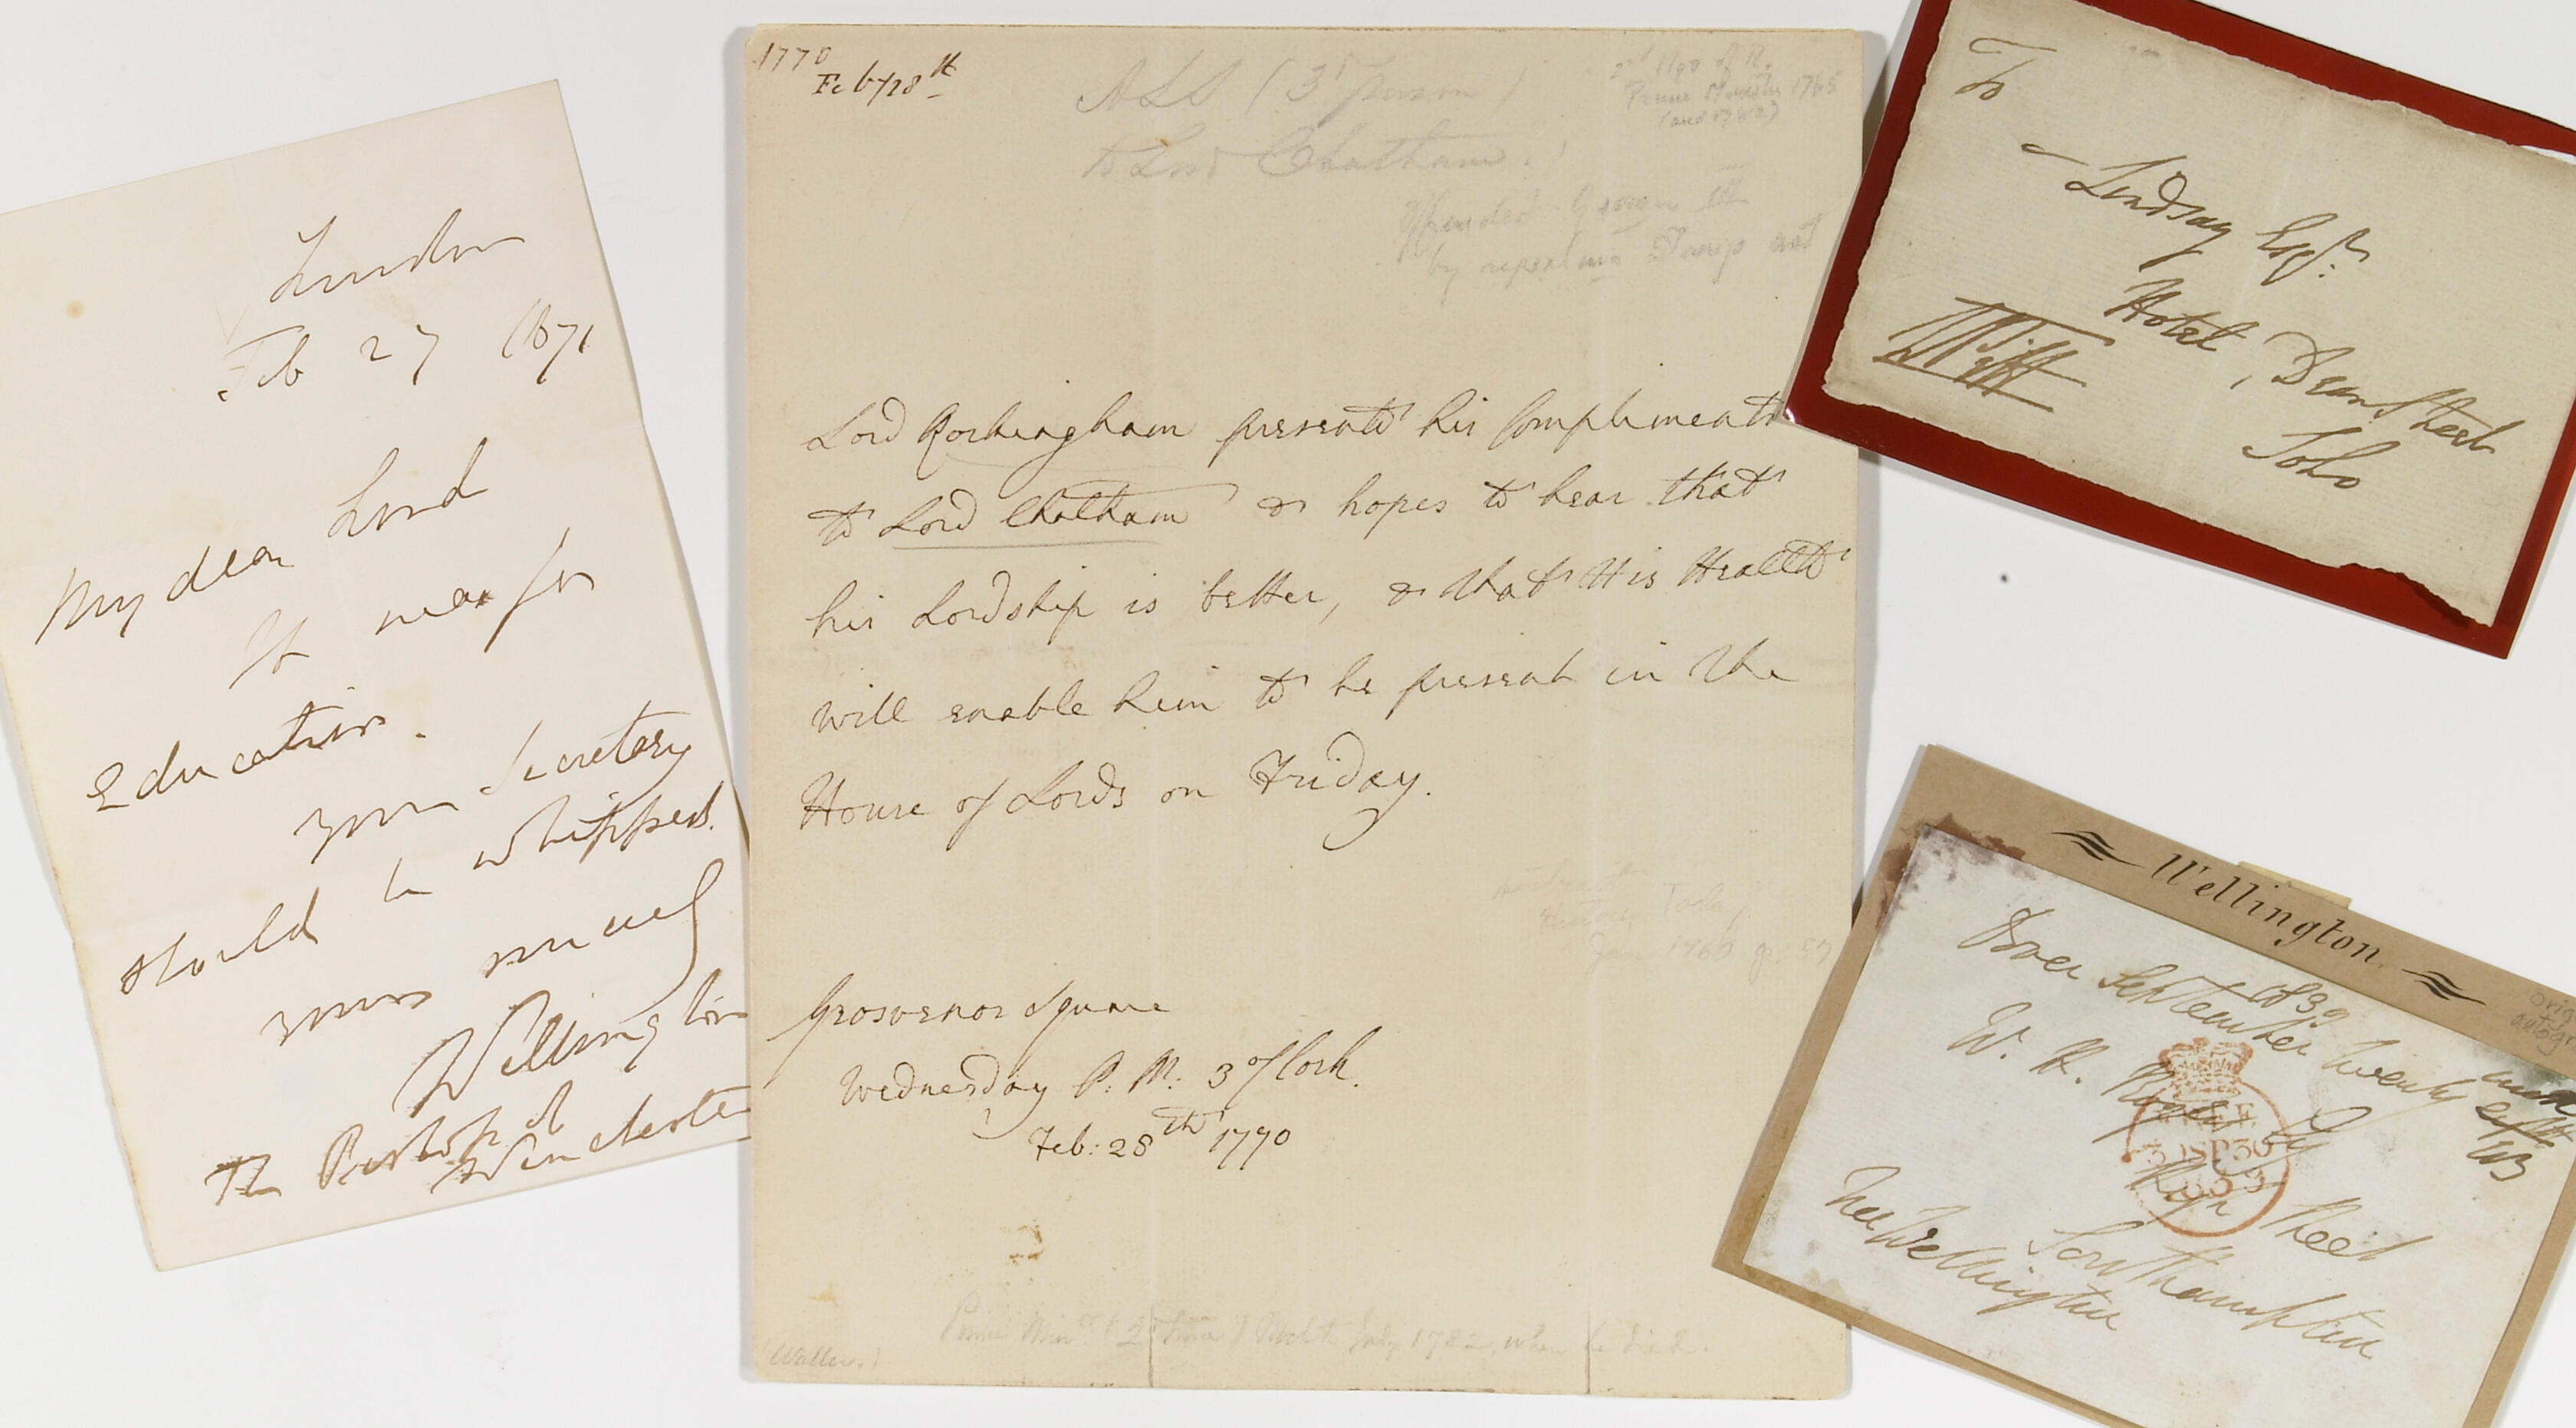 London
Feb 27 1871
My dear Lord
It was for
Education.
your Secretary
should be whipped.
yours sincely
Wellington
The Bishop of
Winchester
1770
Feb/28th
ALS (3rd person)
to Lord Chatham.
Prime Minister 1765
(and 1782)
Offended George
by repealing Stamp act
Lord Rockingham presents his Compliments
to Lord Chatham & hopes to hear that
his Lordship is better, & that His Health
will enable him to be present in the
House of Lords on Friday.
History Today
Jan 1960 p. 57
Grosvenor Square
Wednesday P. M. 3 o'Clock.
Feb: 28th 1770
July 1782, when he died.
(Waller.)
To
- Lindsay Esqr.
Hotel, Dean Street
Soho
WPitt
Wellington
Dover September twenty nine
1839
W. R.
High Street
Southampton
Wellington
30SP30
1839